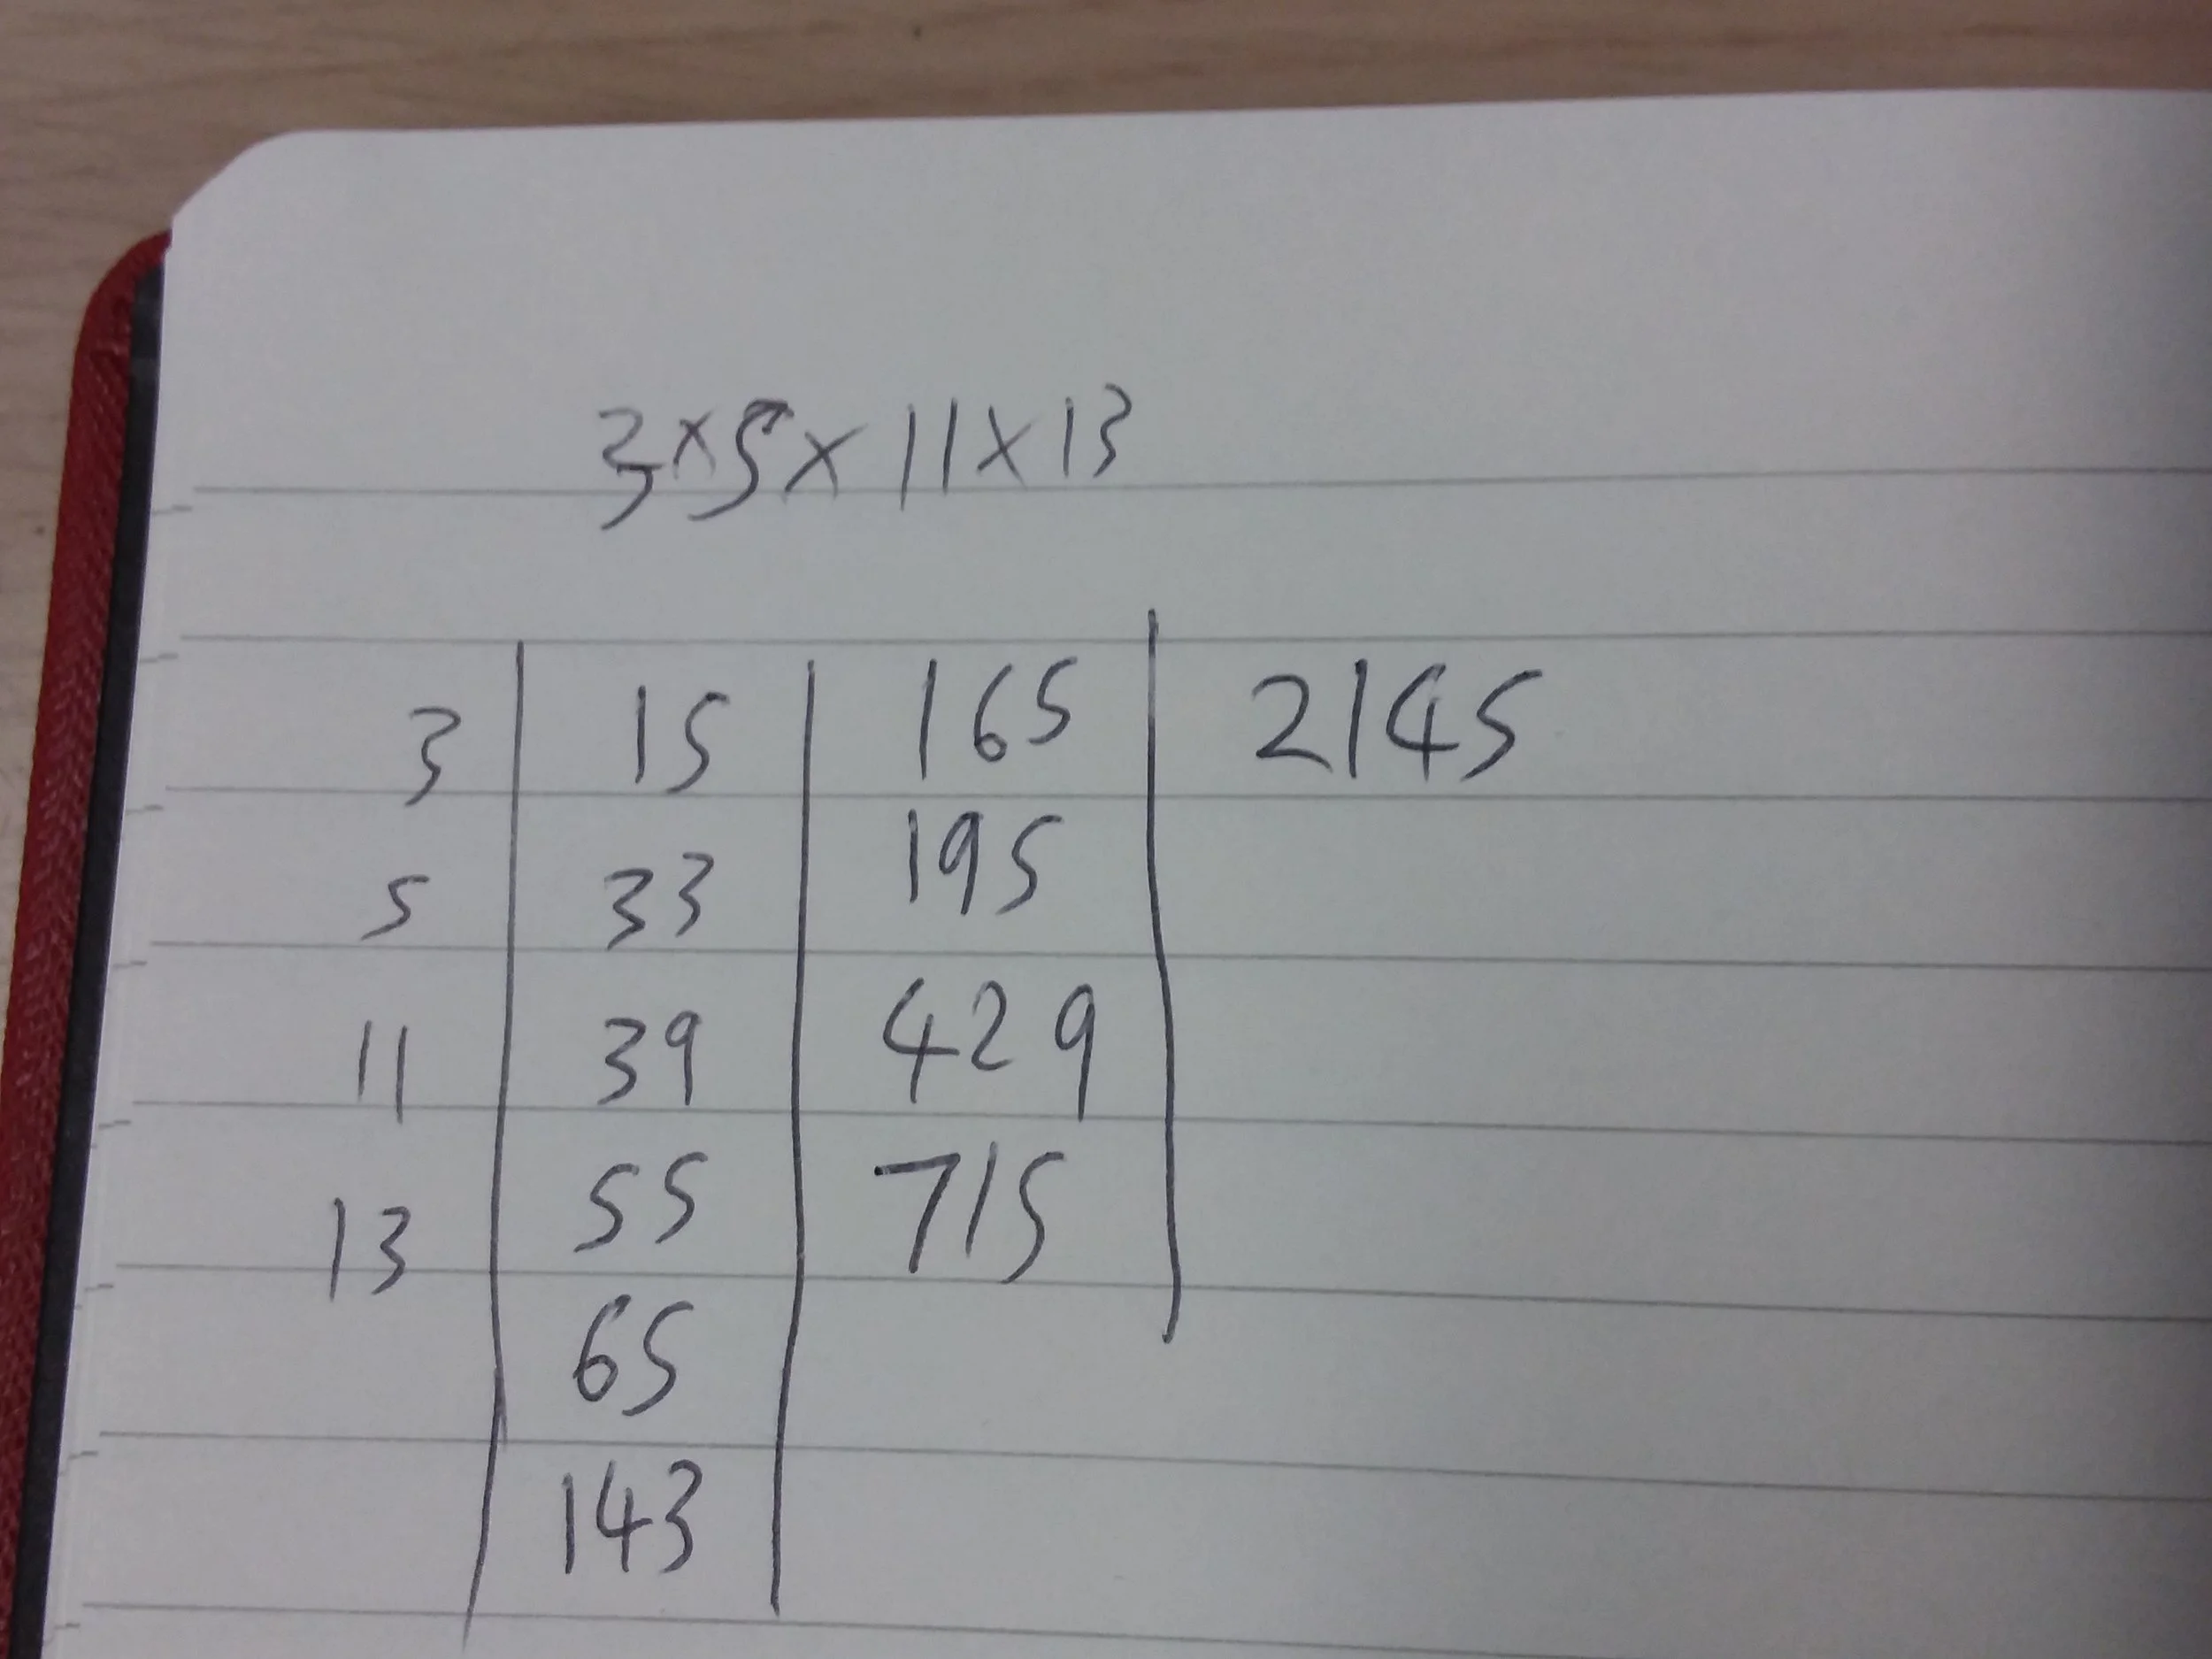 3×5×11×13
3 15 165 2145
5 33 195
11 39 429
13 55 715
65
143